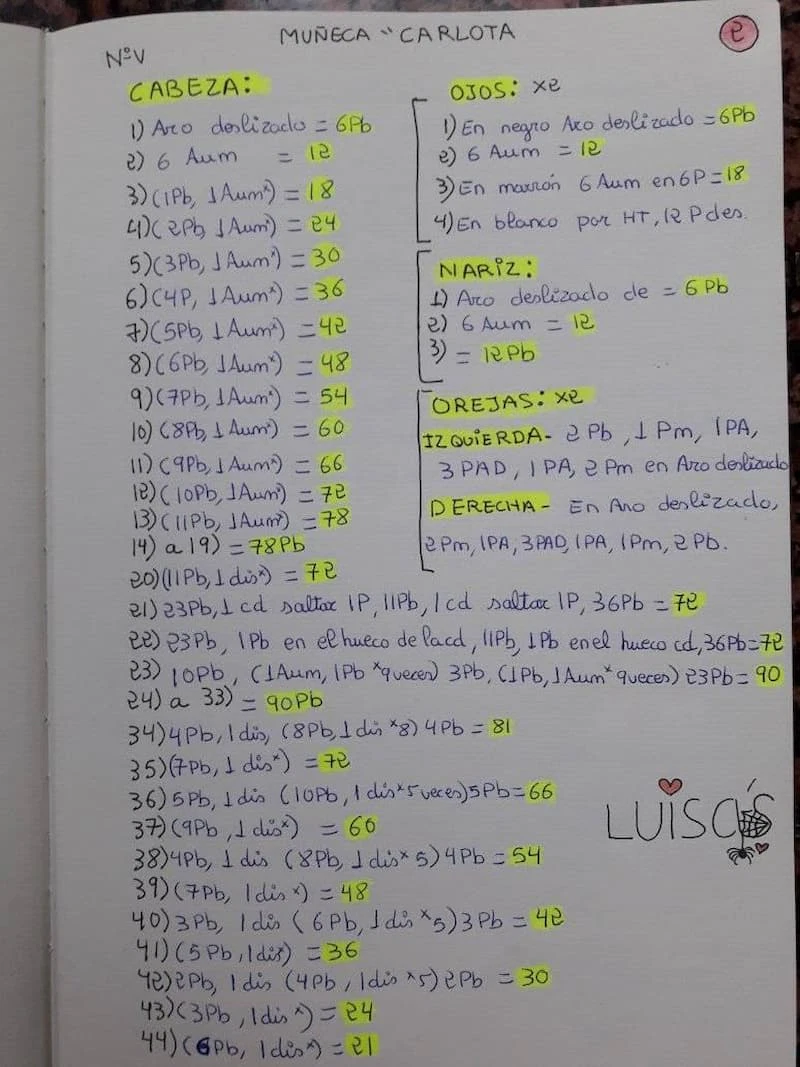 MUÑECA "CARLOTA
2
NºV
CABEZA:
1) Aro deslizado = 6Pb
2) 6 Aum = 12
3) (1Pb, 1Aum*) = 18
4) (2Pb, 1Aum*) = 24
5) (3Pb, 1Aum*) = 30
6) (4P, 1Aum*) = 36
7) (5Pb, 1Aum*) = 42
8) (6Pb, 1Aum*) = 48
9) (7Pb, 1Aum*) = 54
10) (8Pb, 1Aum*) = 60
11) (9Pb, 1Aum*) = 66
12) (10Pb, 1Aum*) = 72
13) (11Pb, 1Aum*) = 78
14) a 19) = 78Pb
20) (11Pb, 1 dis*) = 72
21) 23Pb, 1 cd saltar 1P, 11Pb, 1 cd saltar 1P, 36Pb = 72
22) 23Pb, 1Pb en el hueco de la cd, 11Pb, 1Pb en el hueco cd, 36Pb = 72
23) 10Pb, (1Aum, 1Pb *9veces) 3Pb, (1Pb, 1Aum* 9veces) 23Pb = 90
24) a 33) = 90Pb
34) 4Pb, 1 dis, (8Pb, 1 dis *8) 4Pb = 81
35) (7Pb, 1 dis*) = 72
36) 5Pb, 1 dis (10Pb, 1 dis*5veces) 5Pb = 66
37) (9Pb, 1 dis*) = 60
38) 4Pb, 1 dis (8Pb, 1 dis* 5) 4Pb = 54
39) (7Pb, 1 dis*) = 48
40) 3Pb, 1 dis (6Pb, 1 dis *5) 3Pb = 42
41) (5Pb, 1 dis*) = 36
42) 2Pb, 1 dis (4Pb, 1 dis *5) 2Pb = 30
43) (3Pb, 1 dis*) = 24
44) (6Pb, 1 dis*) = 21
OJOS: x2
1) En negro Aro deslizado = 6Pb
2) 6 Aum = 12
3) En marrón 6 Aum en 6P = 18
4) En blanco por HT, 12 P des.
NARIZ:
1) Aro deslizado de = 6 Pb
2) 6 Aum = 12
3) = 12Pb
OREJAS: x2
IZQUIERDA- 2 Pb, 1 Pm, 1PA,
3 PAD, 1 PA, 2 Pm en Aro deslizado
DERECHA- En Aro deslizado,
2 Pm, 1PA, 3PAD, 1PA, 1Pm, 2 Pb.
LUISA'S